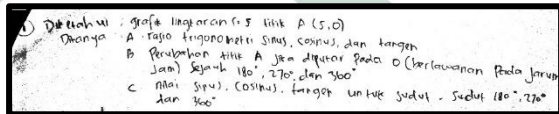 ① Diketahui : grafik lingkaran r = 5 titik A (5,0)
Ditanya A. rasio trigonometri sinus, cosinus, dan tangen
B Perubahan titik A jika diputar pada O (berlawanan Pada Jarum
Jam) Sejauh 180°, 270°, dan 360°
C Nilai sinus, cosinus, tangen untuk sudut - sudut 180°, 270°
dan 360°